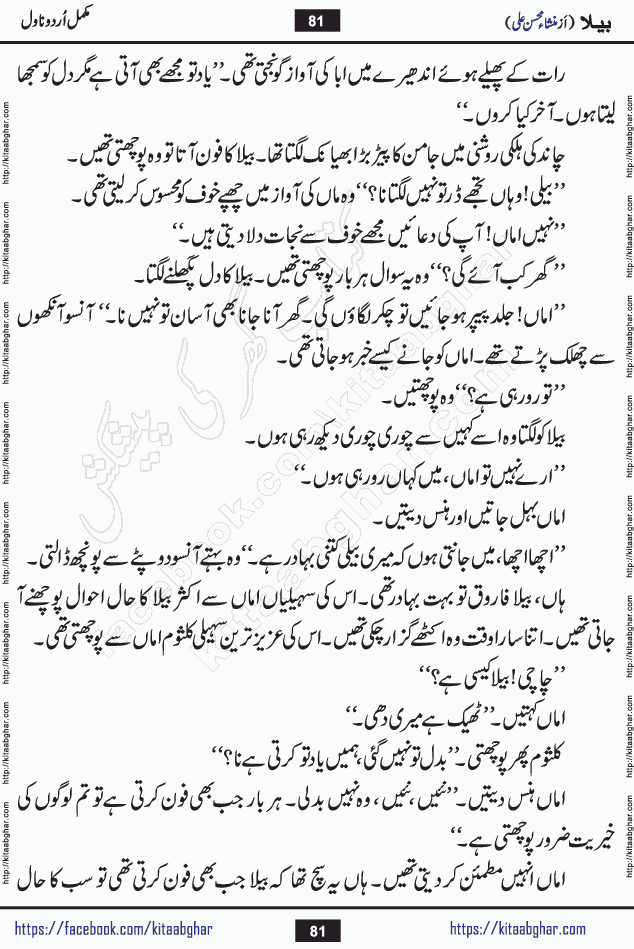 بیلا (از منشاء محسن علی) 81 مکمل اُردو ناول
رات کے پھیلے ہوئے اندھیرے میں ابا کی آواز گونجتی تھی۔ ’’یاد تو مجھے بھی آتی ہے مگر دل کو سمجھا
لیتا ہوں۔ آخر کیا کروں۔‘‘
چاند کی ہلکی روشنی میں جامن کا پیڑ بڑا بھیانک لگتا تھا۔ بیلا کا فون آتا تو وہ پوچھتی تھیں۔
’’بیلی! وہاں تجھے ڈر تو نہیں لگتا نا؟‘‘ وہ ماں کی آواز میں چھپے خوف کو محسوس کر لیتی تھی۔
’’نہیں اماں! آپ کی دعائیں مجھے خوف سے نجات دلا دیتی ہیں۔‘‘
’’گھر کب آئے گی؟‘‘ وہ یہ سوال ہر بار پوچھتی تھیں۔ بیلا کا دل پگھلنے لگتا۔
’’اماں! جلد پیپر ہو جائیں تو چکر لگاؤں گی۔ گھر آنا جانا بھی آسان تو نہیں نا۔‘‘ آنسو آنکھوں
سے چھلک پڑتے تھے۔ اماں کو جانے کیسے خبر ہو جاتی تھی۔
’’تو رو رہی ہے؟‘‘ وہ پوچھتیں۔
بیلا کو لگتا وہ اسے کہیں سے چوری چوری دیکھ رہی ہوں۔
’’ارے نہیں تو اماں، میں کہاں رو رہی ہوں۔‘‘
اماں بہل جاتیں اور ہنس دیتیں۔
’’اچھا اچھا، میں جانتی ہوں کہ میری بیلی کتنی بہادر ہے۔‘‘ وہ بہتے آنسو دوپٹے سے پونچھ ڈالتی۔
ہاں، بیلا فاروق تو بہت بہادر تھی۔ اس کی سہیلیاں اماں سے اکثر بیلا کا حال احوال پوچھنے آ
جاتی تھیں۔ اتنا سارا وقت وہ اکٹھے گزار چکی تھیں۔ اس کی عزیز ترین سہیلی کلثوم اماں سے پوچھتی تھی۔
’’چاچی! بیلا کیسی ہے؟‘‘
اماں کہتیں۔ ’’ٹھیک ہے میری دھی۔‘‘
کلثوم پھر پوچھتی۔ ’’بدل تو نہیں گئی، ہمیں یاد تو کرتی ہے نا؟‘‘
اماں ہنس دیتیں۔ ’’نئیں، نئیں، وہ نہیں بدلی۔ ہر بار جب بھی فون کرتی ہے تو تم لوگوں کی
خیریت ضرور پوچھتی ہے۔‘‘
اماں انہیں مطمئن کر دیتی تھیں۔ ہاں یہ سچ تھا کہ بیلا جب بھی فون کرتی تھی تو سب کا حال
https://facebook.com/kitaabghar 81 http://kitaabghar.com
http://kitaabghar.com
کتاب گھر کی پیشکش
facebook.com/kitaabghar
kitaabghar.com